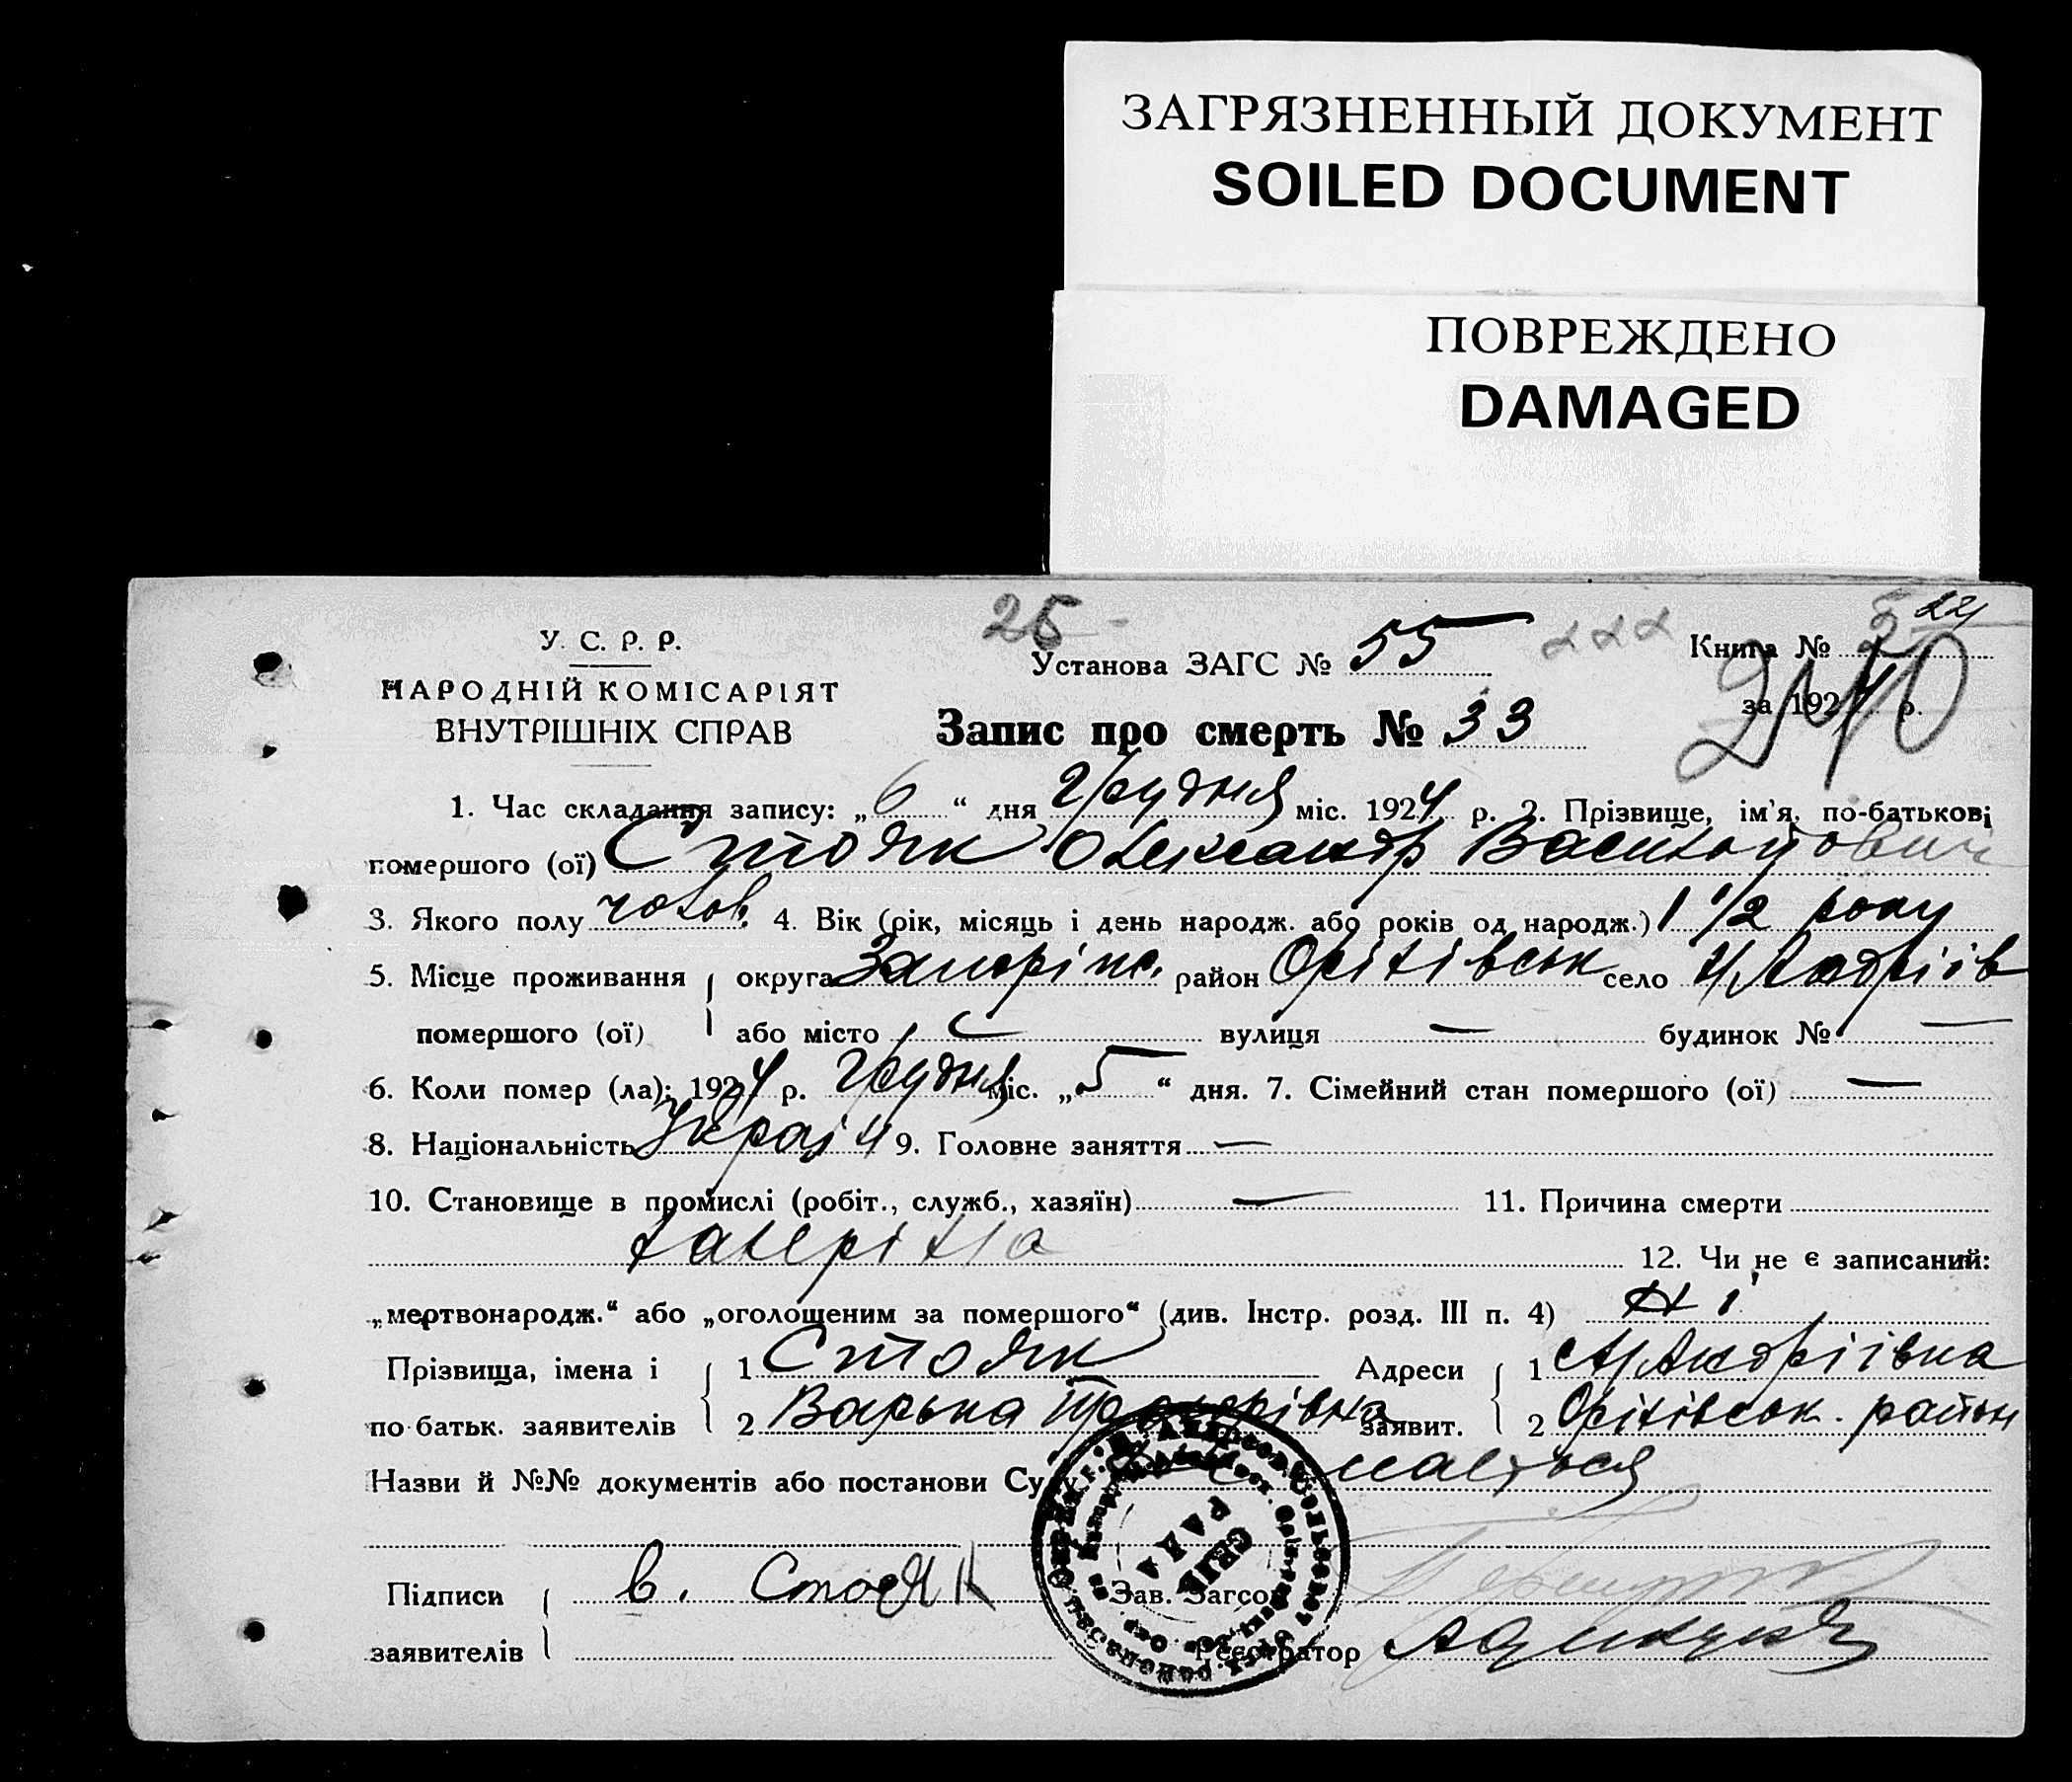 ЗАГРЯЗНЕННЫЙ ДОКУМЕНТ
SOILED DOCUMENT
ПОВРЕЖДЕНО
DAMAGED
25
У. С. Р. Р.
НАРОДНІЙ КОМІСАРІЯТ
ВНУТРІШНІХ СПРАВ
Установа ЗАГС № 55
Книга № 5
за 1924 р.
240
Запис про смерть № 33
1. Час складання запису: „6“ дня Грудня міс. 1924 р. 2. Прізвище, ім'я, по-батькові
помершого (ої) Стояк Олександр
3. Якого полу чолов. 4. Вік (рік, місяць і день народж. або років од народж.) 1 1/2 року
5. Місце проживання округа Запоріж. район Оріхівськ село Н/Андріїв
помершого (ої) або місто — вулиця — будинок № —
6. Коли помер (ла): 1924 р. Грудня міс. „5“ дня. 7. Сімейний стан помершого (ої) —
8. Національність Украін 9. Головне заняття —
10. Становище в промислі (робіт., служб., хазяїн) — 11. Причина смерти
12. Чи не є записаний:
„мертвонародж.“ або „оголошеним за помершого“ (див. Інстр. розд. III п. 4) Ні
Прізвища, імена і 1 Стояк Адреси 1 Андріівка
по батьк. заявителів 2 Варька заявит. 2 Оріхівськ. район
Назви й №№ документів або постанови Суду мається
Підписи в. Стоян Зав. Загсом
заявителів Реєстратор
СІЛЬ
РАДА